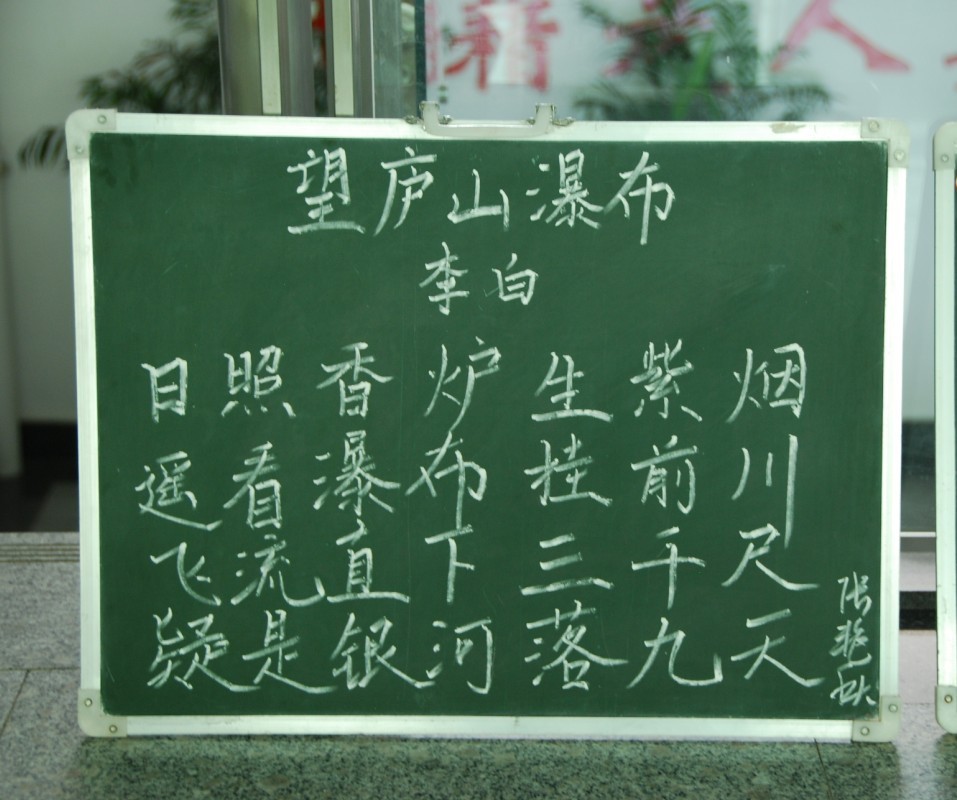 望庐山瀑布
李白
日照香炉生紫烟
遥看瀑布挂前川
飞流直下三千尺
疑是银河落九天
张